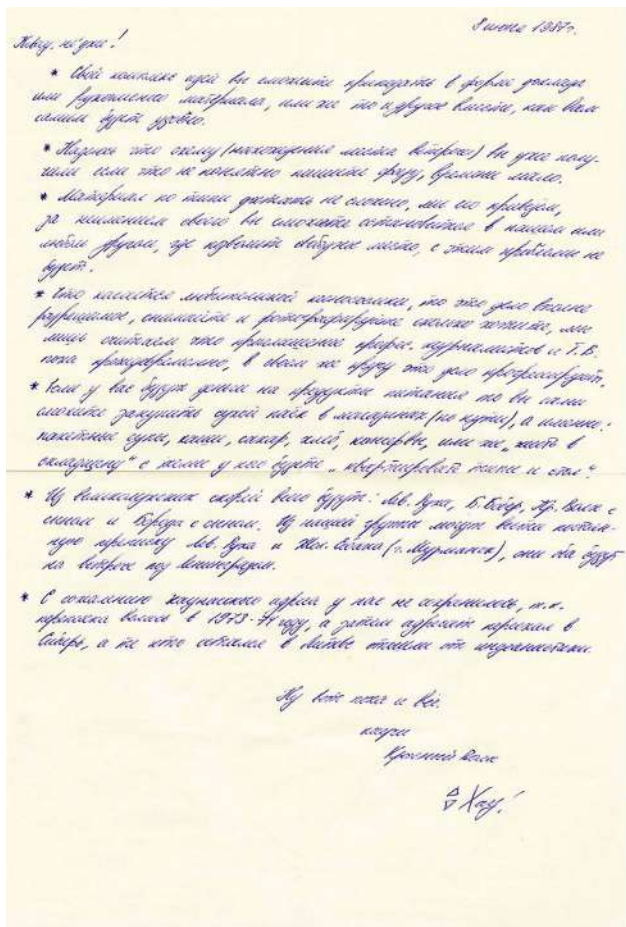 8 июня 1987г.
!
* Свой комплекс идей вы сможете преподать в форме доклада
или рукописного материала, или же то и другое вместе, как Вам
самим будет удобно.
* Надеюсь что схему (нахождения места встречи) вы уже полу-
чили если это не конечно пишите сразу, времени мало.
* Материал по типи достать не сложно, мы его привезём,
за неимением своего вы сможете остановиться в нашем или
любом другом, где позволит свободное место, с этим проблемы не
будет.
* Что касается любительской киносъёмки, то это дело вполне
разрешимое, снимайте и фотографируйте сколько хотите, мы
лишь считаем что приглашение профес. журналистов и Т.В.
пока преждевременно, в своём же кругу это дело
* Если у вас будут деньги на продукты питания то вы сами
сможете закупить сухой паёк в магазинах (по пути), а именно:
пакетные супы, каши, сахар, хлеб, консервы, или же „жить в
складчину“ с теми у кого будете „квартировать типи и стол“.
* Из великолукских скорей всего будут: Мв. Рука, Б. Бобёр, Кр. Волк с
сыном и Борода с сыном. Из нашей группы могут вести
переписку Мв. Рука и Жёл. Собака (г. Мурманск), они оба будут
на встрече под Ленинградом.
* С сожалению каунасского адреса у нас не сохранилось, т.к.
переписка велась в 1973-74 году, а затем адресат переехал в
Сибирь, а те кто остался в Литве отошли от индеанистики.
Ну вот пока и всё.
Красный Волк
Хау!